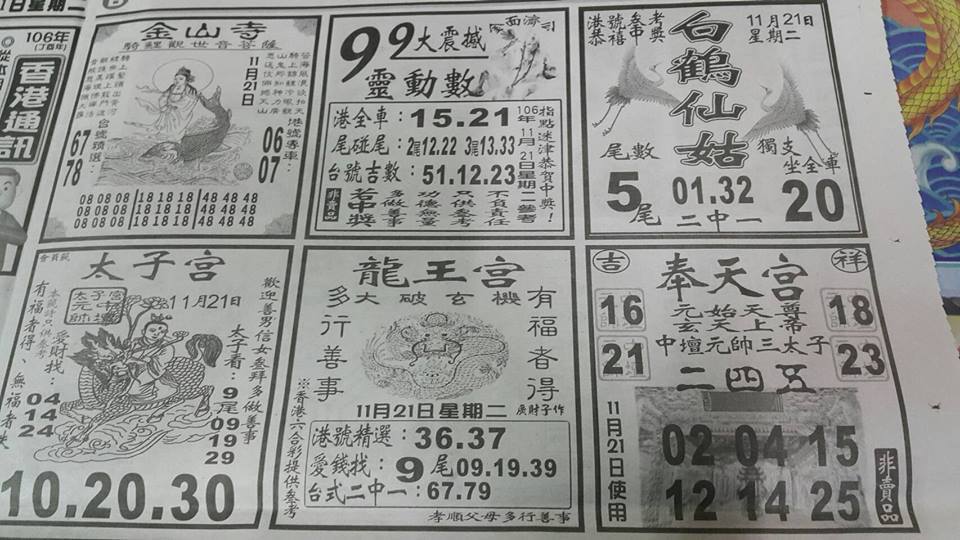 106年
(丁酉年)
香港通訊
金山寺
騎鰲觀世音菩薩
11月21日
港號專車
06
07
台號精選
67
78
08 08 08 18 18 18 48 48 48
08 08 08 18 18 18 48 48 48
08 08 08 18 18 18 48 48 48
99大震撼
靈動數
港全車：15.21
尾碰尾：2尾12.22 3尾13.33
台號吉數：51.12.23
106年11月21日星期二參考
指點迷津恭賀中獎！
非賣品
若中獎
多做善事
功德無量
只供參考
不負責任
港號參考
恭禧中獎
白鶴仙姑
11月21日
星期二
尾數
5尾
01.32
二中一
獨支
坐全車
20
太子宮
11月21日
歡迎善男信女參拜多做善事
太子看：9尾
09
19
29
有福者得、無福者失
本籤詩只供參考
愛財找：
04
14
24
10.20.30
龍王宮
大破玄機
多行善事
有福者得
庚財子作
11月21日星期二
港號精選：36.37
愛錢找：9尾09.19.39
台式二中一：67.79
※香港六合彩提供參考
孝順父母多行善事
吉
祥
奉天宮
元始天尊
玄天上帝
中壇元帥三太子
16
21
18
23
二四五
11月21日使用
02 04 15
12 14 25
非賣品